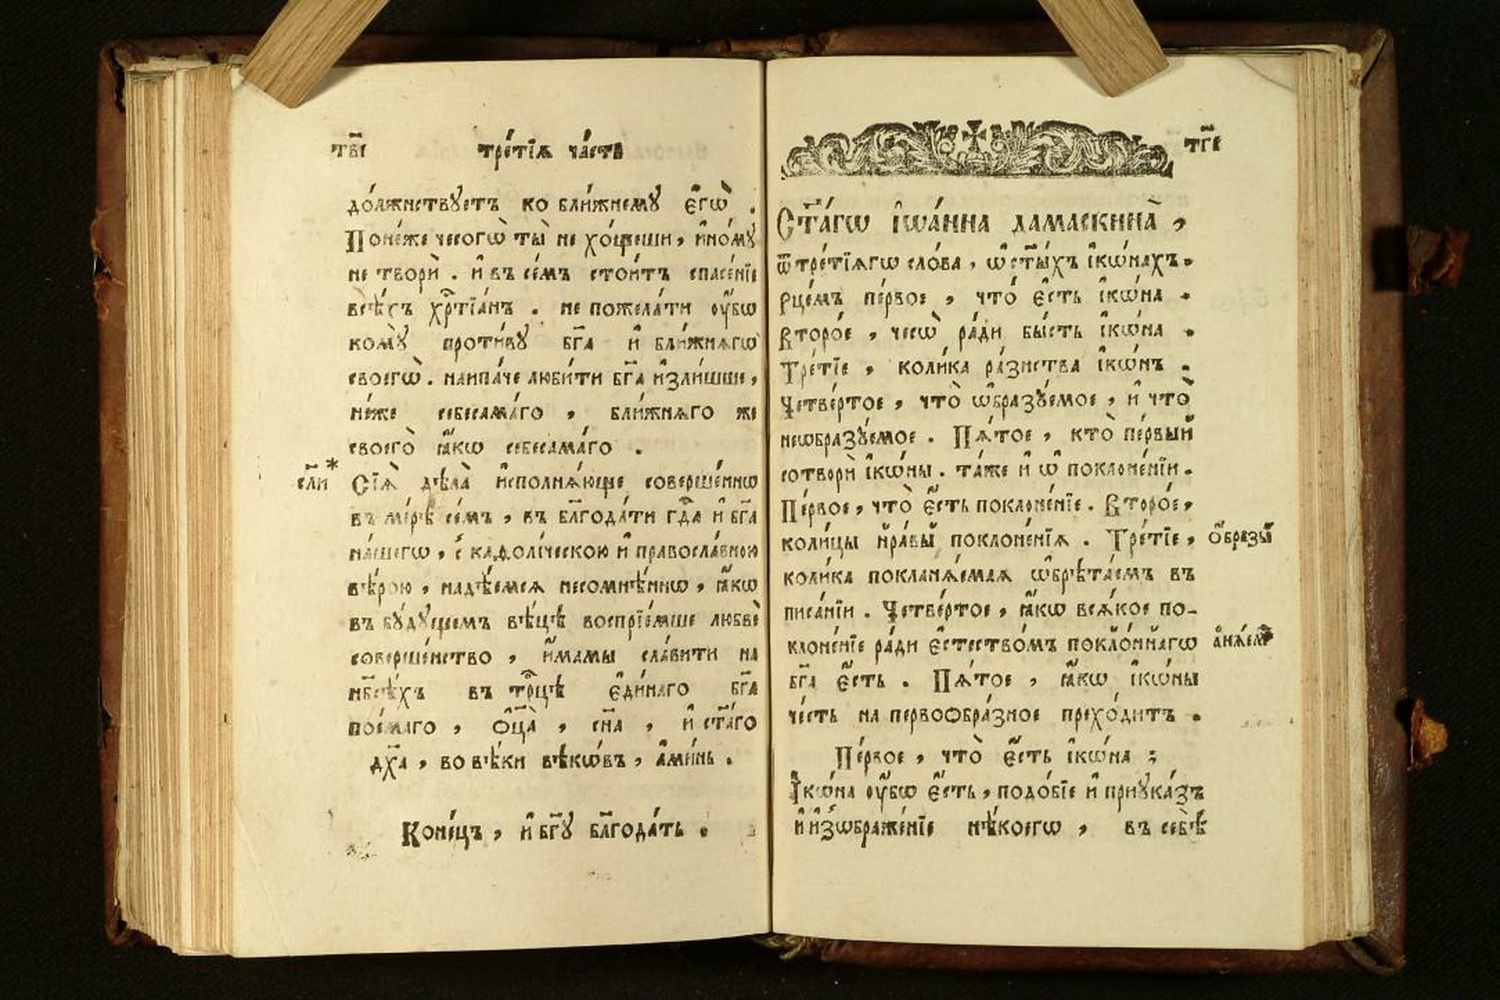 тв҃і трéтїѧ чáсть
дóлжнствꙋетъ ко бли́жнемꙋ є҆гѡ̀ .
Понéже чесогѡ̀ ты̀ не хóщеши, и҆нóмꙋ
не твори̋ . и҆ въ се́мъ стои́тъ спасéнїе
всѣ́хъ хр҃тїáнъ . не пожелáти ᲂу҆́бѡ
комꙋ̀ проти́вꙋ бг҃а и҆ бли́жнѧгѡ
своегѡ̀ . наипáче люби́ти бг҃а и҆зли́шше,
нéже себесамáго , бли́жнѧго же
своегò ꙗ҆́кѡ себесамáго .
є҆ли́ * Сїѧ̀ дѣлà и҆сполнѧ́юще совершéннѡ
въ мíрѣ се́мъ , въ бл҃года́ти гд҃а и҆ бг҃а
нáшегѡ, с̾ каѳолíческою и҆ правослáвною
вѣ́рою , надѣ́емсѧ несомнѣ́ннѡ , ꙗ҆́кѡ
въ бꙋ́дꙋщемъ вѣ́цѣ воспрїéмше любвѐ
совершéнство , и҆́мамы слáвити на
нб҃сѣ́хъ въ трⷪ҇цѣ є҆ди́наго бг҃а
поéмаго , ѻ҆ц҃à , сн҃а , и҆ ст҃áго
дх҃а , во вѣ́ки вѣкѡ́въ , а҆ми́нь .
Конéцъ , и҆ бг҃ꙋ бл҃года́ть .
тг҃і
Ст҃áгѡ і҆ѡáнна дамаскинà ,
ѿ трéтїѧгѡ слóва , ѡ҆ ст҃ы́хъ і҆кѡ́нахъ.
Рцéмъ пéрвое , чтó є҆́сть і҆кѡ́на .
Вторóе , чесѡ̀ рáди бы́сть і҆кѡ́на .
Трéтїе , коли́ка рáзнства і҆кѡ́нъ .
Четвéртое , чтò ѡ҆бразꙋ́емое , и҆ чтò
неѡбразꙋ́емое . Пѧ́тое , ктò пéрвый
сотвори̋ і҆кѡ́ны . тáже и҆ ѡ҆ поклонéнїи .
Пéрвое , чтò є҆́сть поклонéнїе . Вторóе,
коли́цы нрáвы поклонéнїѧ . Трéтїе , ѻ҆́бразы
коли́ка покланѧ́емаѧ ѡ҆брѣтáемъ въ
писáнїи . Четвéртое , ꙗ҆́кѡ всѧ́кое по-
клонéнїе рáди є҆стество́мъ поклóннагѡ
бг҃а є҆́сть . Пѧ́тое , ꙗ҆́кѡ і҆кѡ́ны
чéсть на первоѻбрáзное прехóдитъ .
Пéрвое , чтò є҆́сть і҆кѡ́на ;
І҆кѡ́на ᲂу҆́бѡ є҆́сть , подóбїе и҆ приꙋкáзъ
и҆ и҆зѡбражéнїе нѣ́коегѡ , въ себѣ̀